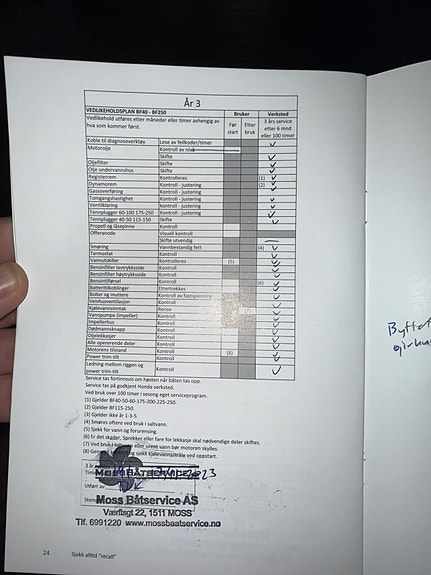 År 3
VEDLIKEHOLDSPLAN BF40 - BF250
Vedlikehold utføres etter måneder eller timer avhengig av hva som kommer først.
Bruker
Verksted
Før start
Etter bruk
3 års service etter 6 mnd eller 100 timer
Koble til diagnoseverktøy Lese av feilkoder/timer
Motorolje Kontroll av nivå
Skifte
Oljefilter Skifte
Olje undervannshus Skifte
Registerrem Kontrolleres (1)
Dynamorem Kontroll - justering (2)
Gassoverføring Kontroll - justering
Tomgangshastighet Kontroll - justering
Ventilklaring Kontroll - justering
Tennplugger 60-100 175-250 Skifte
Tennplugger 40-50 115-150 Skifte
Propell og låsepinne Kontroll
Offeranode Visuell kontroll
Skifte utvendig
Smøring Vannbestandig fett (4)
Termostat Kontroll
Vannutskiller Kontrolleres (5)
Bensinfilter lavtrykksside Kontroll
Bensinfilter høytrykksside Kontroll
Bensintilførsel Kontroll (6)
Batteritilkoblinger Ettertrekkes
Bolter og muttere Kontroll av fastspenning
Veivhusventilasjon Kontroll
Kjølevannsinntak Rense
Vannpumpe (impeller) Kontroll
Impellerhus Kontroll
Dødmannsknapp Kontroll
Oljelekkasjer Kontroll
Alle opererende deler Kontroll
Motorens tilstand Kontroll (8)
Power trim-tilt Kontroll
Ledning mellom riggen og power trim-tilt Kontroll
Service tas fortinnsvis om høsten når båten tas opp.
Service tas på godkjent Honda verksted.
Ved bruk over 100 timer i sesong eget serviceprogram.
(1) Gjelder BF40-50-60-175-200-225-250.
(2) Gjelder BF115-250.
(3) Gjelder ikke år 1-3-5.
(4) Smøres oftere ved bruk i saltvann.
(5) Sjekk for vann og forurensing.
(6) Er det skader, Sprekker eller fare for lekkasje skal nødvendige deler skiftes.
(7) Ved bruk i saltvann eller urent vann bør motoren skylles.
(8)
sjekk kjølevannsstråle ved oppstart.
3 år
Utført av
MOSS BÅTSERVICE
2023
Moss Båtservice AS
Værftsgt 22, 1511 MOSS
Tlf. 6991220 www.mossbaatservice.no
24 Sjekk alltid "recall"
Byttet